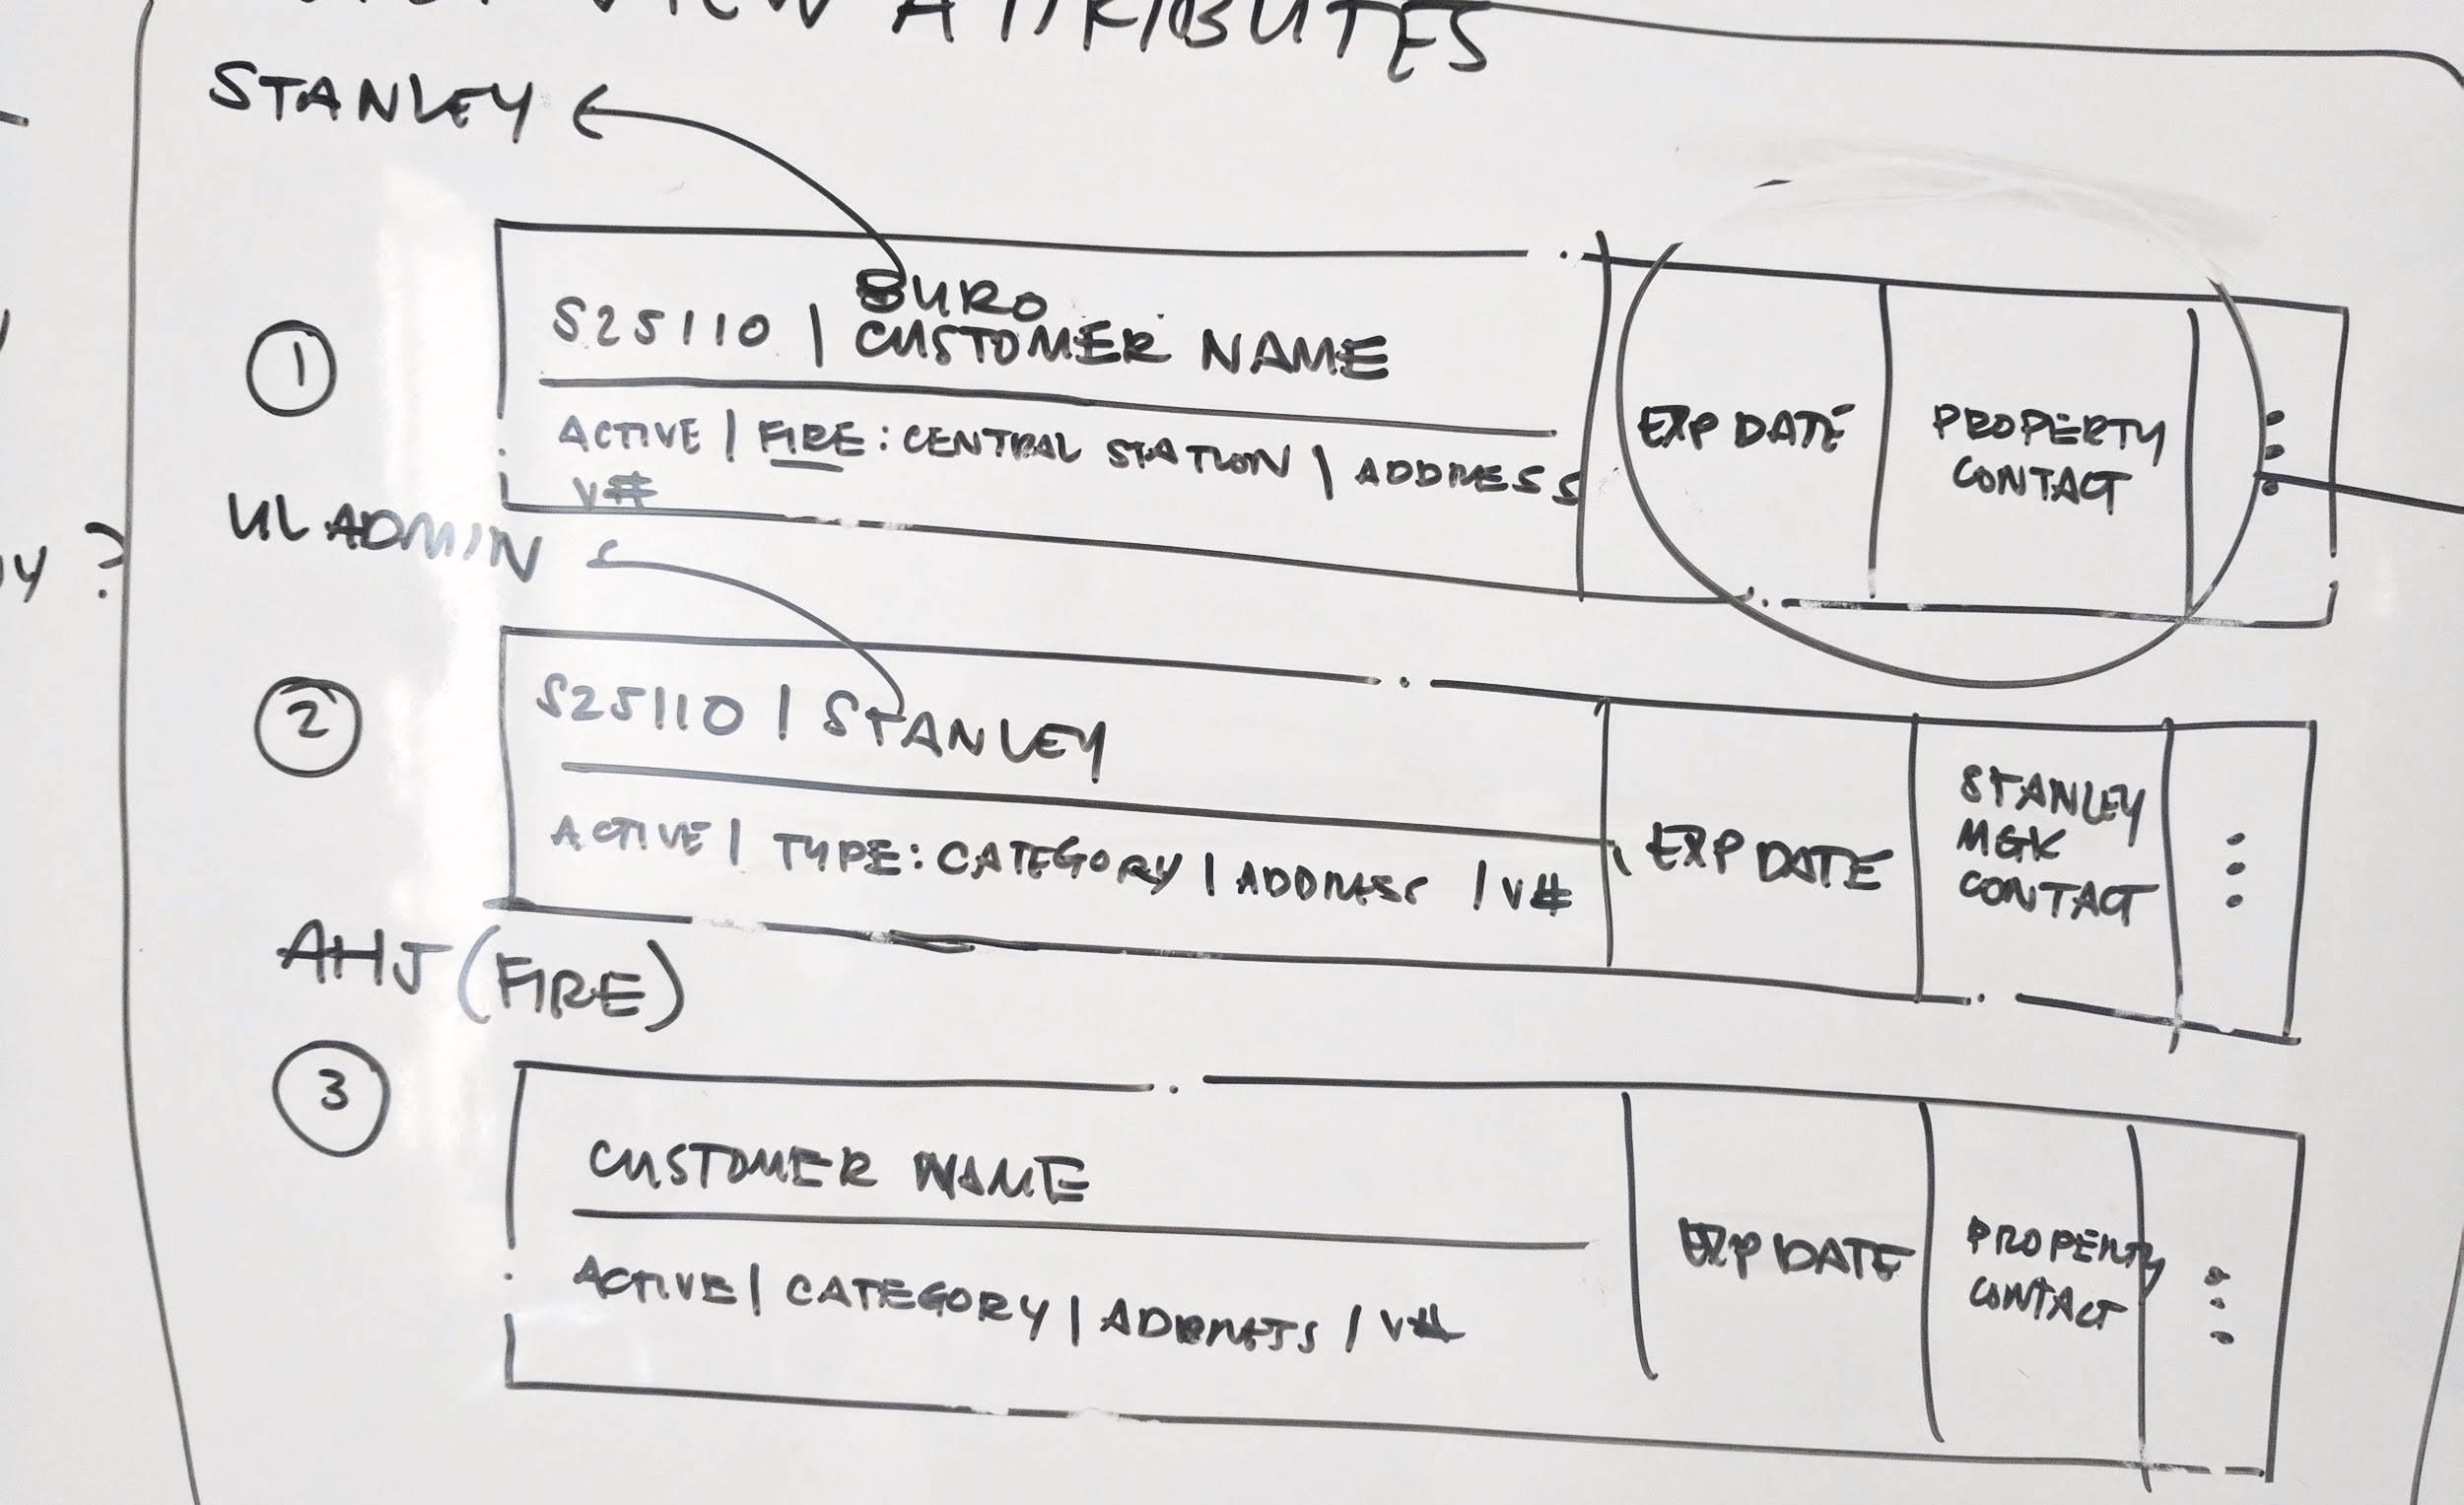 VIEW ATTRIBUTES
STANLEY
1
BURO
S25110 | CUSTOMER NAME
ACTIVE | FIRE: CENTRAL STATION | ADDRESS
V#
EXP DATE
PROPERTY
CONTACT
UL ADMIN
2
S25110 | STANLEY
ACTIVE | TYPE: CATEGORY | ADDRESS | V#
EXP DATE
STANLEY
MGK
CONTACT
AHJ (FIRE)
3
CUSTOMER NAME
ACTIVE | CATEGORY | ADDRESS | V#
EXP DATE
PROPERTY
CONTACT